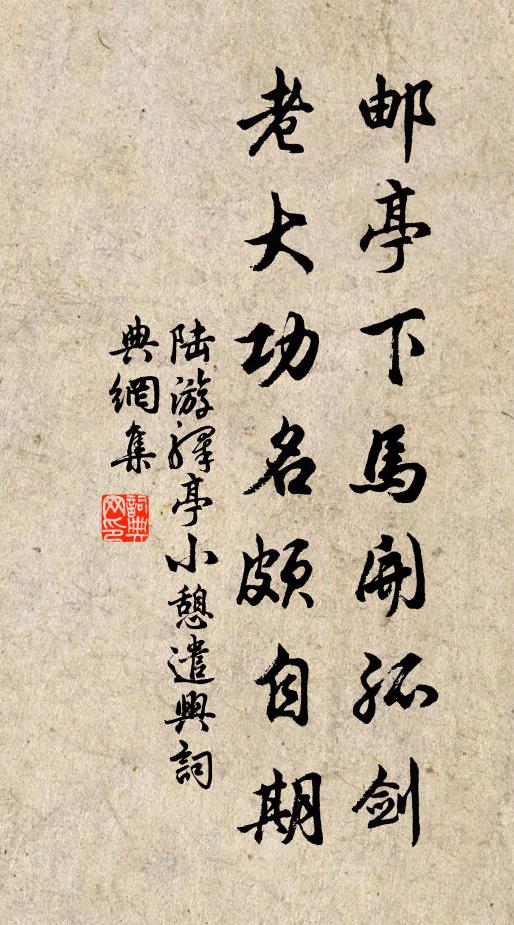 邮亭下馬開孤剑
老大功名頗自期
陆游驛亭小憩遣興詞
典網集
詞典網印